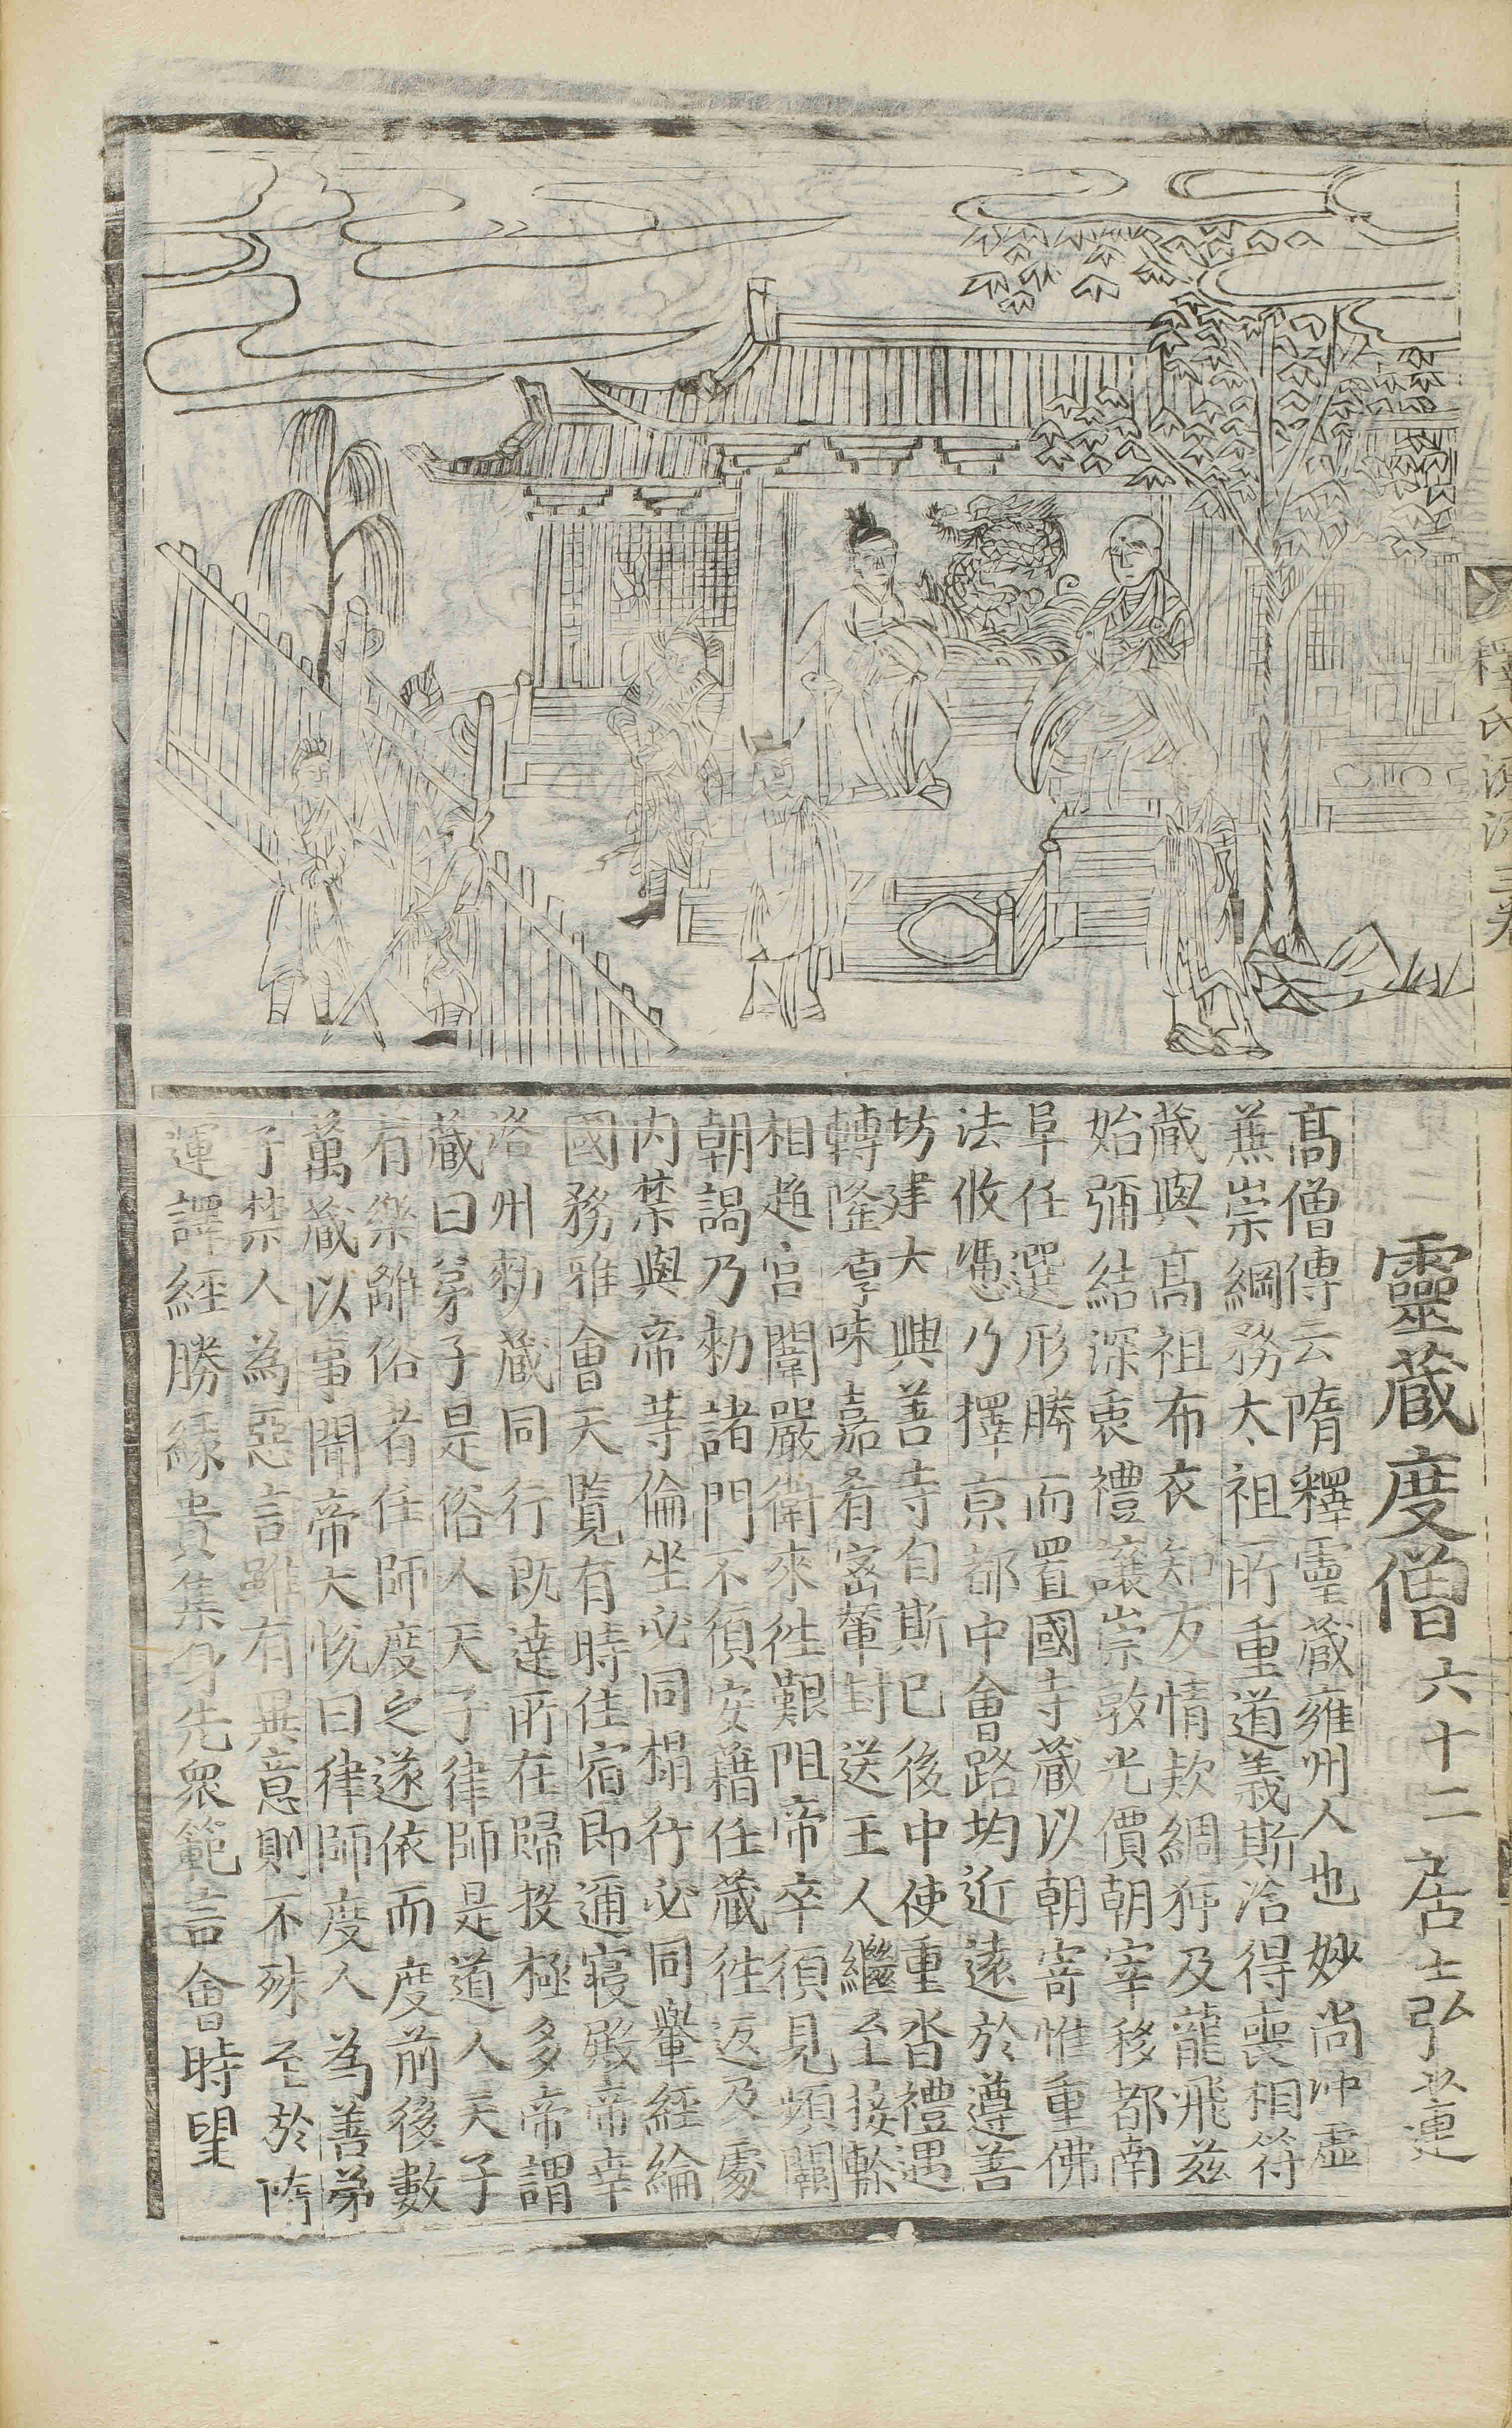 釋氏源流三卷
靈藏度僧六十二居士弘連
髙僧傳云隋釋靈藏雍州人也妙尚冲虛
兼崇綱務太祖所重道義斯洽得喪相符
藏與髙祖布衣知友情欵綢狎及龍飛兹
始彌結深衷禮讓崇敦光價朝宰移都南
阜任選形勝而置國寺藏以朝寄惟重佛
法攸憑乃擇京都中會路均近遠於遵善
坊建大興善寺自斯已後中使重沓禮遇
轉隆享味嘉肴密輦封送王人繼至接軫
相趋宫闈嚴衛來徃艱阻帝卒須見頻闕
朝謁乃勑諸門不須安籍任藏徃返及處
内禁與帝等倫坐必同榻行必同轝經綸
國務雅會天覽有時住宿即邇寢殿帝幸
洛州勑藏同行既達所在歸投極多帝謂
藏曰弟子是俗人天子律師是道人天子
有樂離俗者任師度之遂依而度前後數
萬藏以事聞帝大悦曰律師度人為善弟
子禁人為惡言雖有異意則不殊至於隋
運譯經勝緣貴集身先眾範言會時望